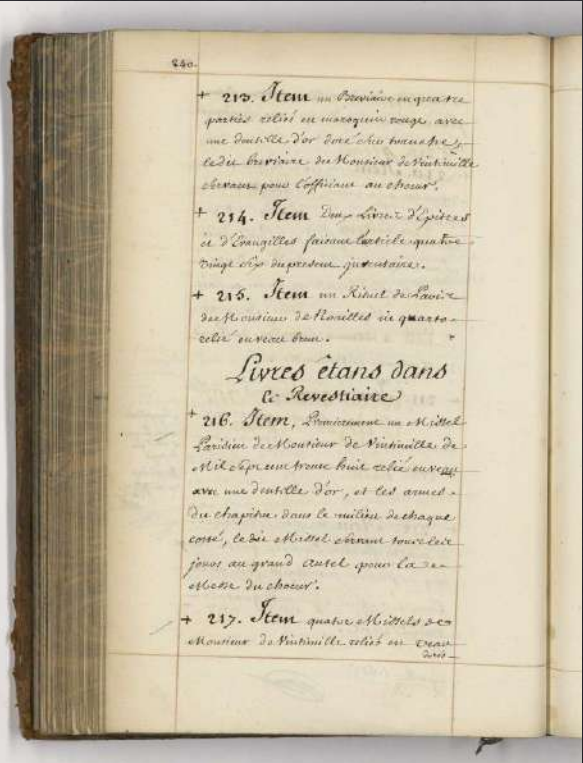 240.
+ 213. Item un Breviaire en quatre
parties relié en maroquin rouge, avec
une dentelle d'or doré sur tranche,
ledit breviaire de Monsieur de Vintimille
servant pour l'officiant au choeur.
+ 214. Item Deux Livres d'Epitres
et d'Evangilles faisant l'article quatre
vingt six du present inventaire.
+ 215. Item un Rituel de Paris
de Monsieur de Noailles in quarto
relié en veau brun.
Livres étans dans
le Revestiaire
+ 216. Item, Premierement un Missel
Parisien de Monsieur de Vintimille de
Mil sept cent trente huit relié en veau
avec une dentelle d'or, et les armes
du chapitre dans le milieu de chaque
costé, ledit Missel servant tous les
jours au grand autel pour la
Messe du choeur.
+ 217. Item quatre Missels de
Monsieur de Vintimille reliés en veau